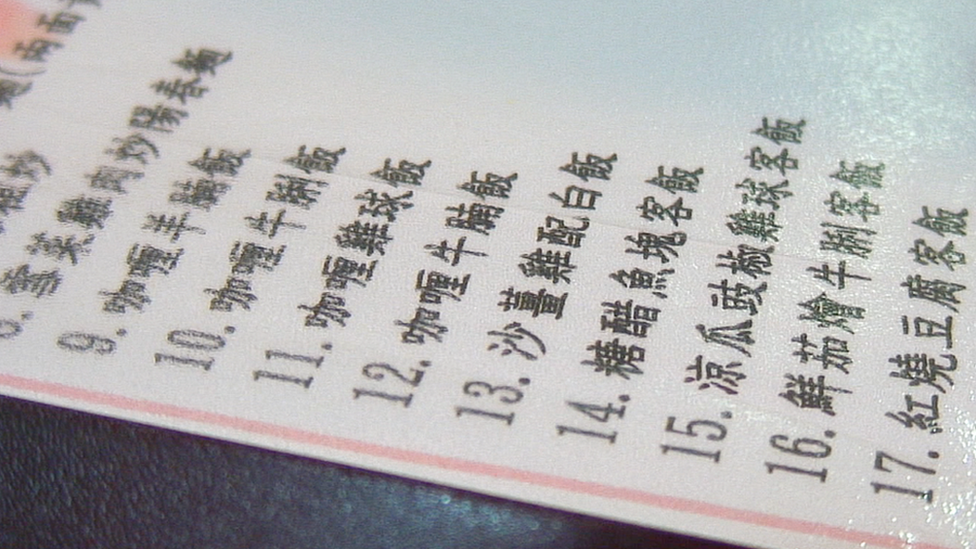 (兩面
炒陽春麵
9. 咖喱羊腩飯
10. 咖喱牛脷飯
11. 咖喱雞球飯
12. 咖喱牛腩飯
13. 沙薑雞配白飯
14. 糖醋魚塊客飯
15. 涼瓜豉椒雞球客飯
16. 鮮茄燴牛脷客飯
17. 紅燒豆腐客飯